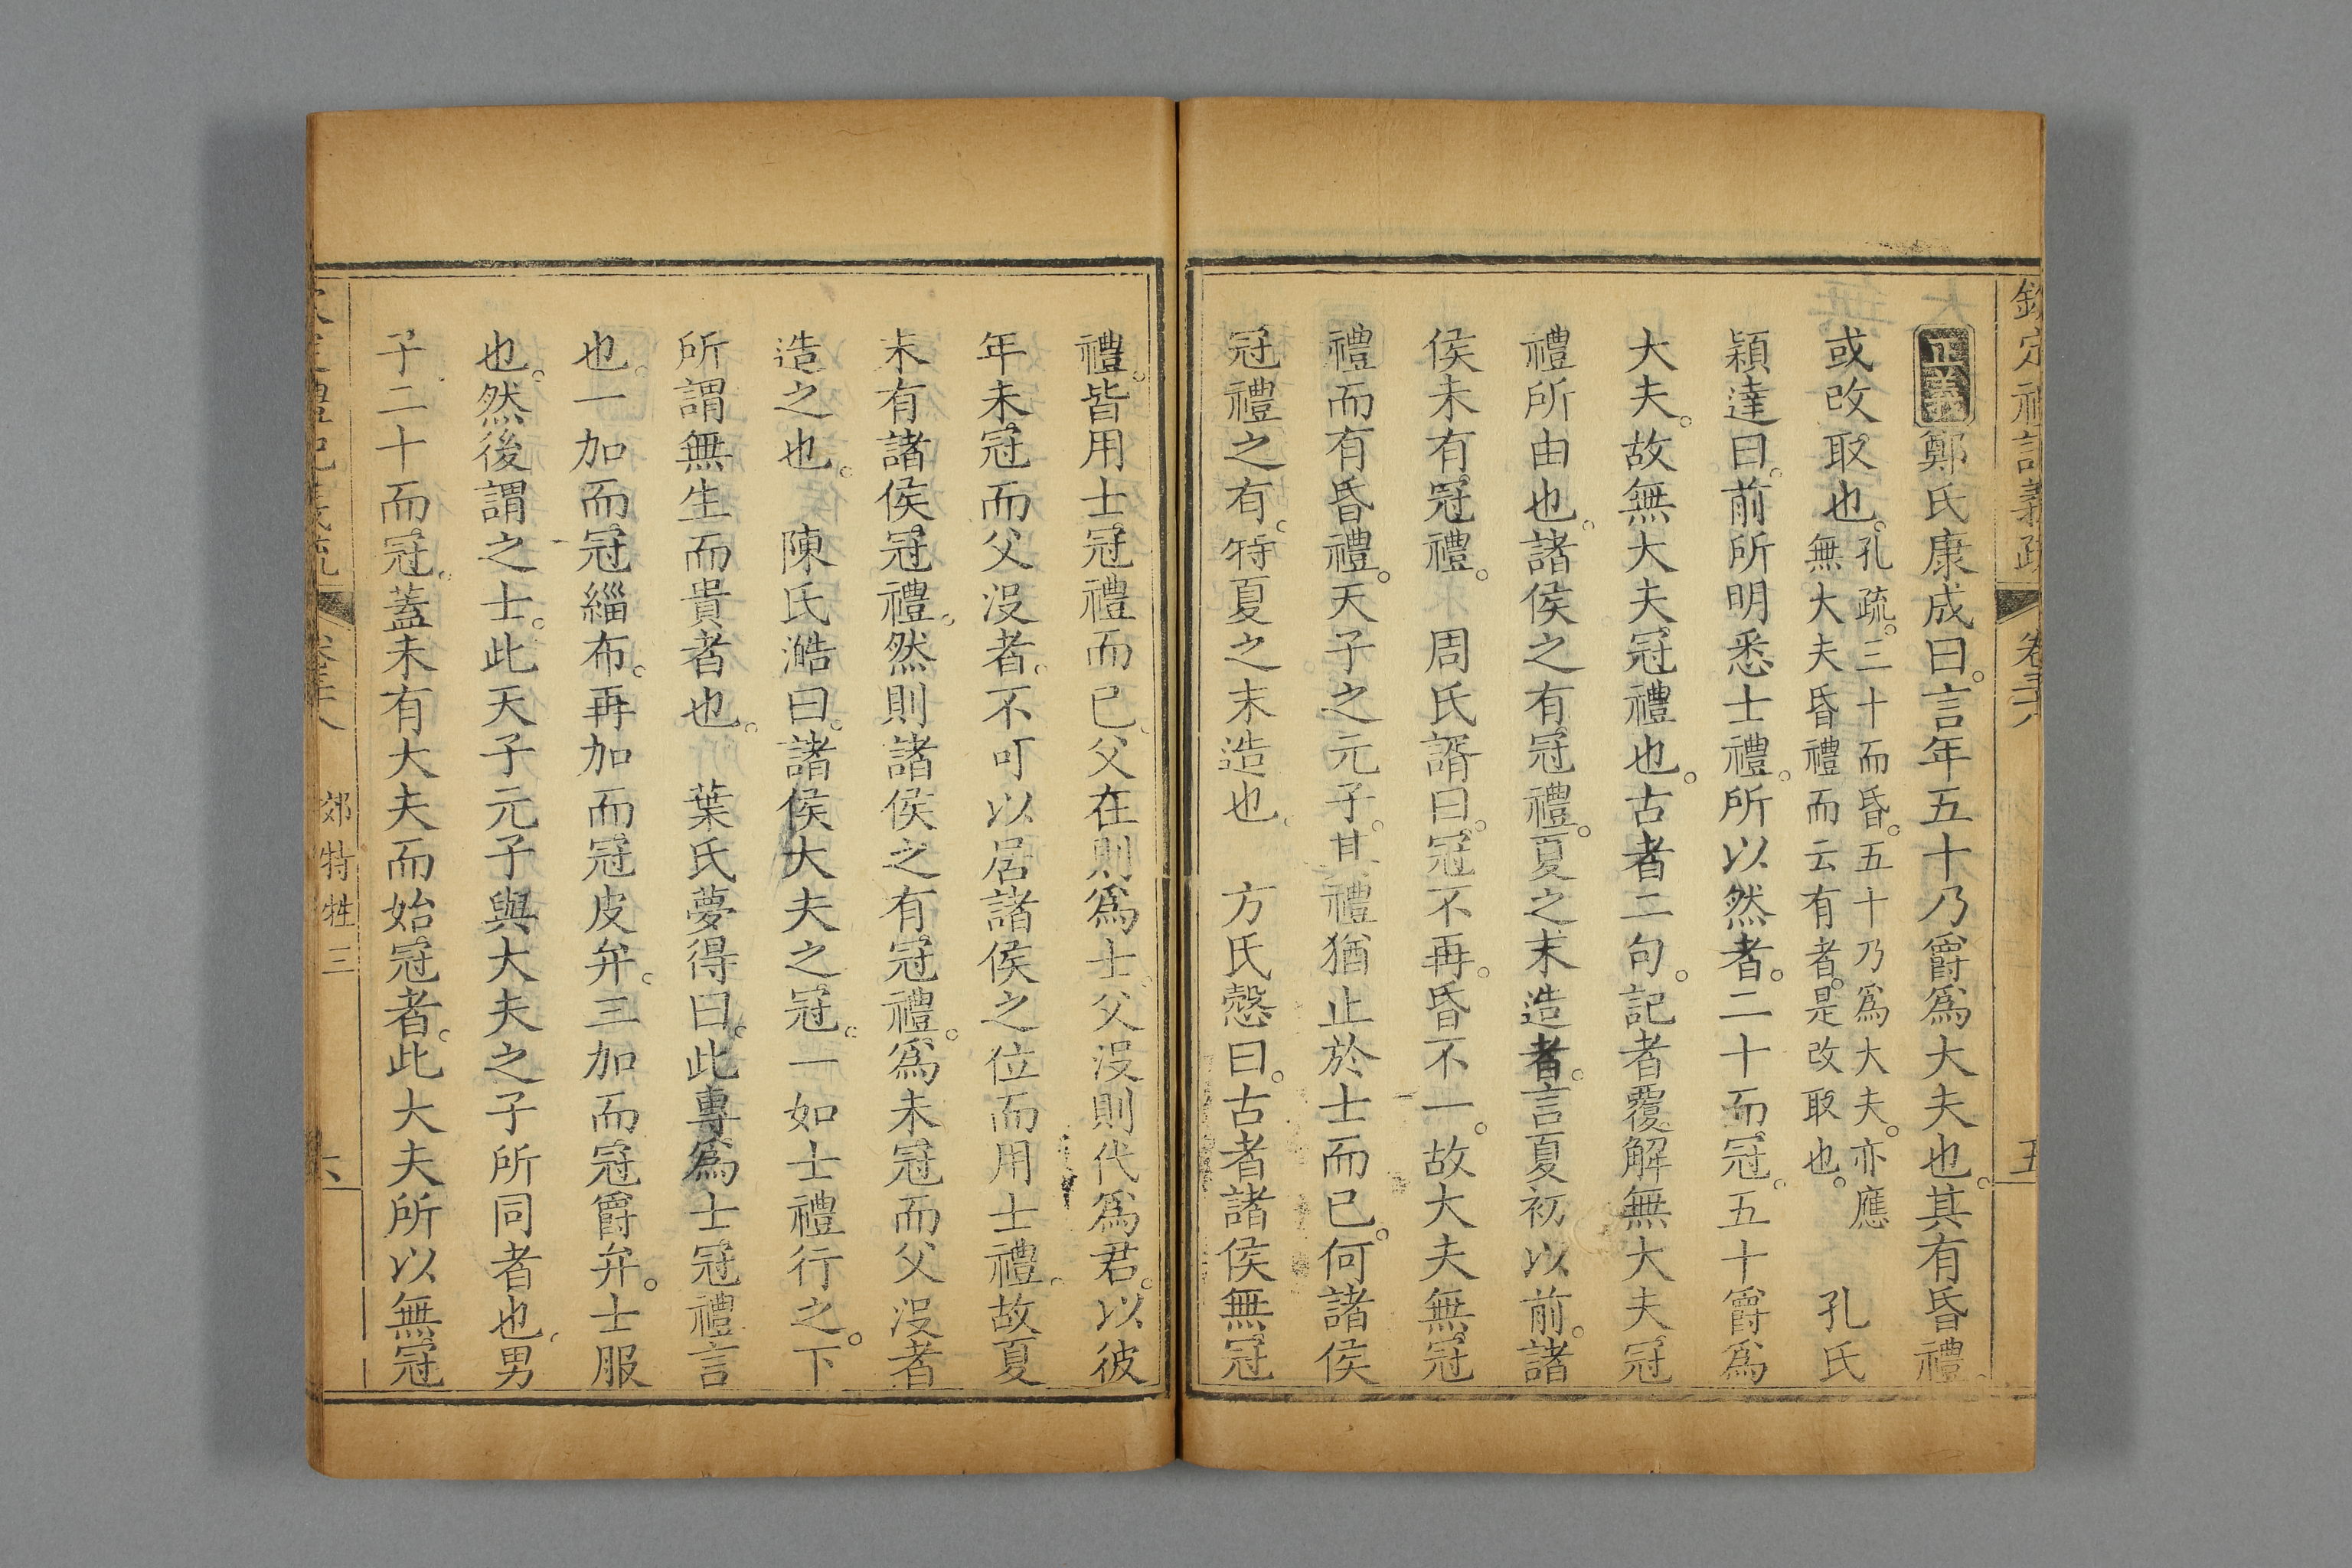 欽定禮記義疏 卷三十八 五
正義鄭氏康成曰。言年五十乃爵爲大夫也。其有昏禮。
或改取也。孔疏。三十而昏。五十乃爲大夫。亦應
無大夫昏禮而云有者。是改取也。 孔氏
穎達曰。前所明悉士禮。所以然者。二十而冠。五十爵爲
大夫。故無大夫冠禮也。古者二句。記者覆解無大夫冠
禮所由也。諸侯之有冠禮。夏之末造者。言夏初以前。諸
侯未有冠禮。 周氏諝曰。冠不再。昏不一。故大夫無冠
禮而有昏禮。天子之元子。其禮猶止於士而已。何諸侯
冠禮之有。特夏之末造也。 方氏慤曰。古者諸侯無冠
禮。皆用士冠禮而已。父在則爲士。父沒則代爲君。以彼
年未冠而父沒者。不可以居諸侯之位而用士禮。故夏
末有諸侯冠禮。然則諸侯之有冠禮。爲未冠而父沒者
造之也。 陳氏澔曰。諸侯大夫之冠。一如士禮行之。下
所謂無生而貴者也。 葉氏夢得曰。此專爲士冠禮言
也。一加而冠緇布。再加而冠皮弁。三加而冠爵弁。士服
也。然後謂之士。此天子元子與大夫之子所同者也。男
子二十而冠。蓋未有大夫而始冠者。此大夫所以無冠
禮記義疏 卷三十八 郊特牲三 六